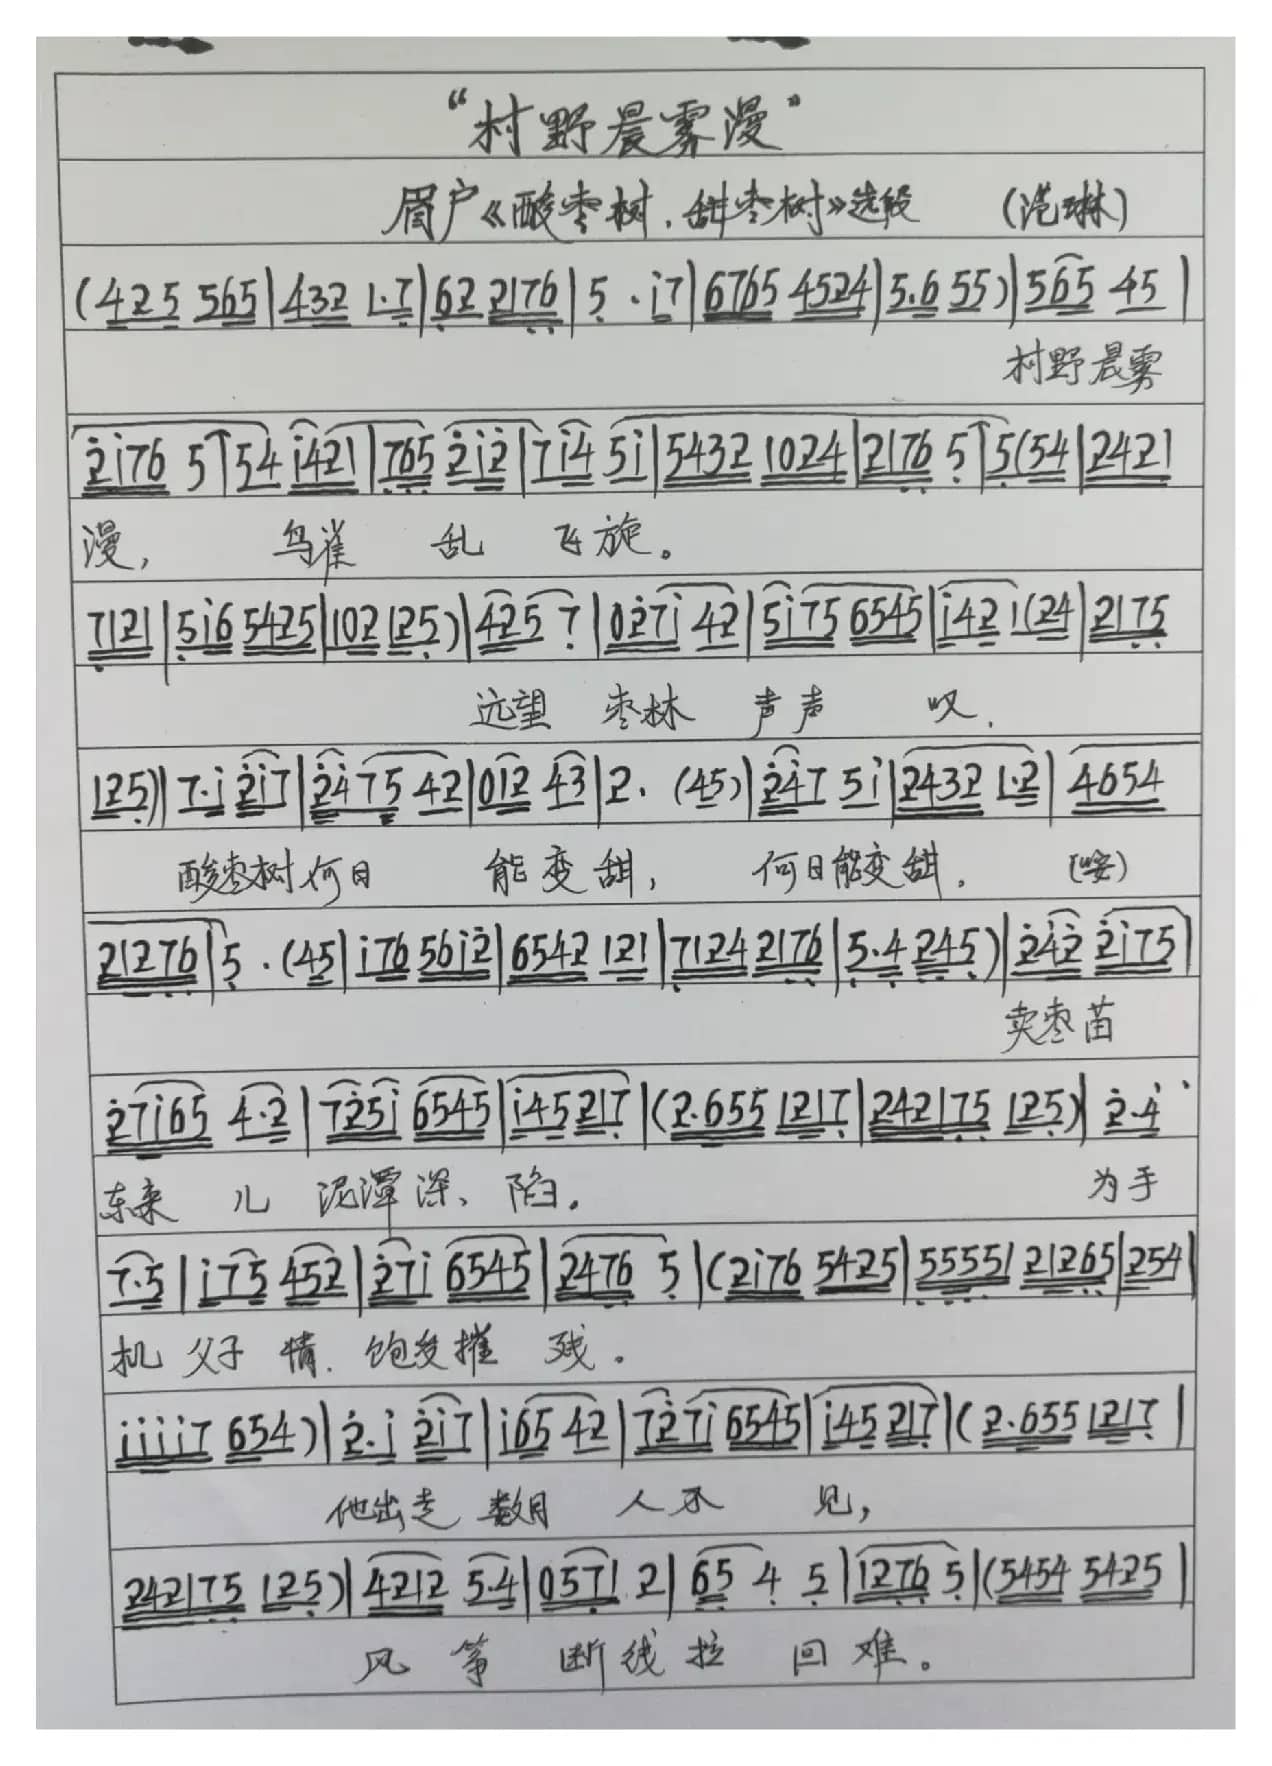 “村野晨雾漫”
眉户《酸枣树、甜枣树》选段 (范琳)
(425 565|432 1·7|62 2176|5 · i7|6765 4524|5·6 55)|565 45|
村野晨雾
2i76 5↑54 i421|765 2i2|7 i4 5i|5432 1024|2176 5↑5(54|2421
漫, 鸟雀 乱 飞旋。
7121|5i6 5425|102 125)|425 7|027i 42|5i75 6545|i42 1(24|2175
远望 枣林 声声 叹,
125)|7·i 2i7|2475 42|012 43|2· (45)|247 5i|2432 1·2|4654
酸枣树何日 能变甜, 何日能变甜, (咹)
21276|5 · (45|i76 56i2|6542 121|7124 2176|5·4 245)|242 2i75|
卖枣苗
27i65 4·2|725i 6545|i45217|(2·655 1217|242175 125)|2·4
东来 儿 泥潭深、陷。 为手
7·5|i75 452|27i 6545|2476 5|(2i76 5425|55551 21265|254|
机 父子 情, 饱受摧 残。
iiii7 654)|2·i 2i7|i65 42|727i 6545|i45 217|(2·655 1217|
他出走 数月 人不 见,
242175 125)|4212 5·4|0571 2|65 4 5|1276 5|(5454 5425|
风 筝 断线拉 回难。